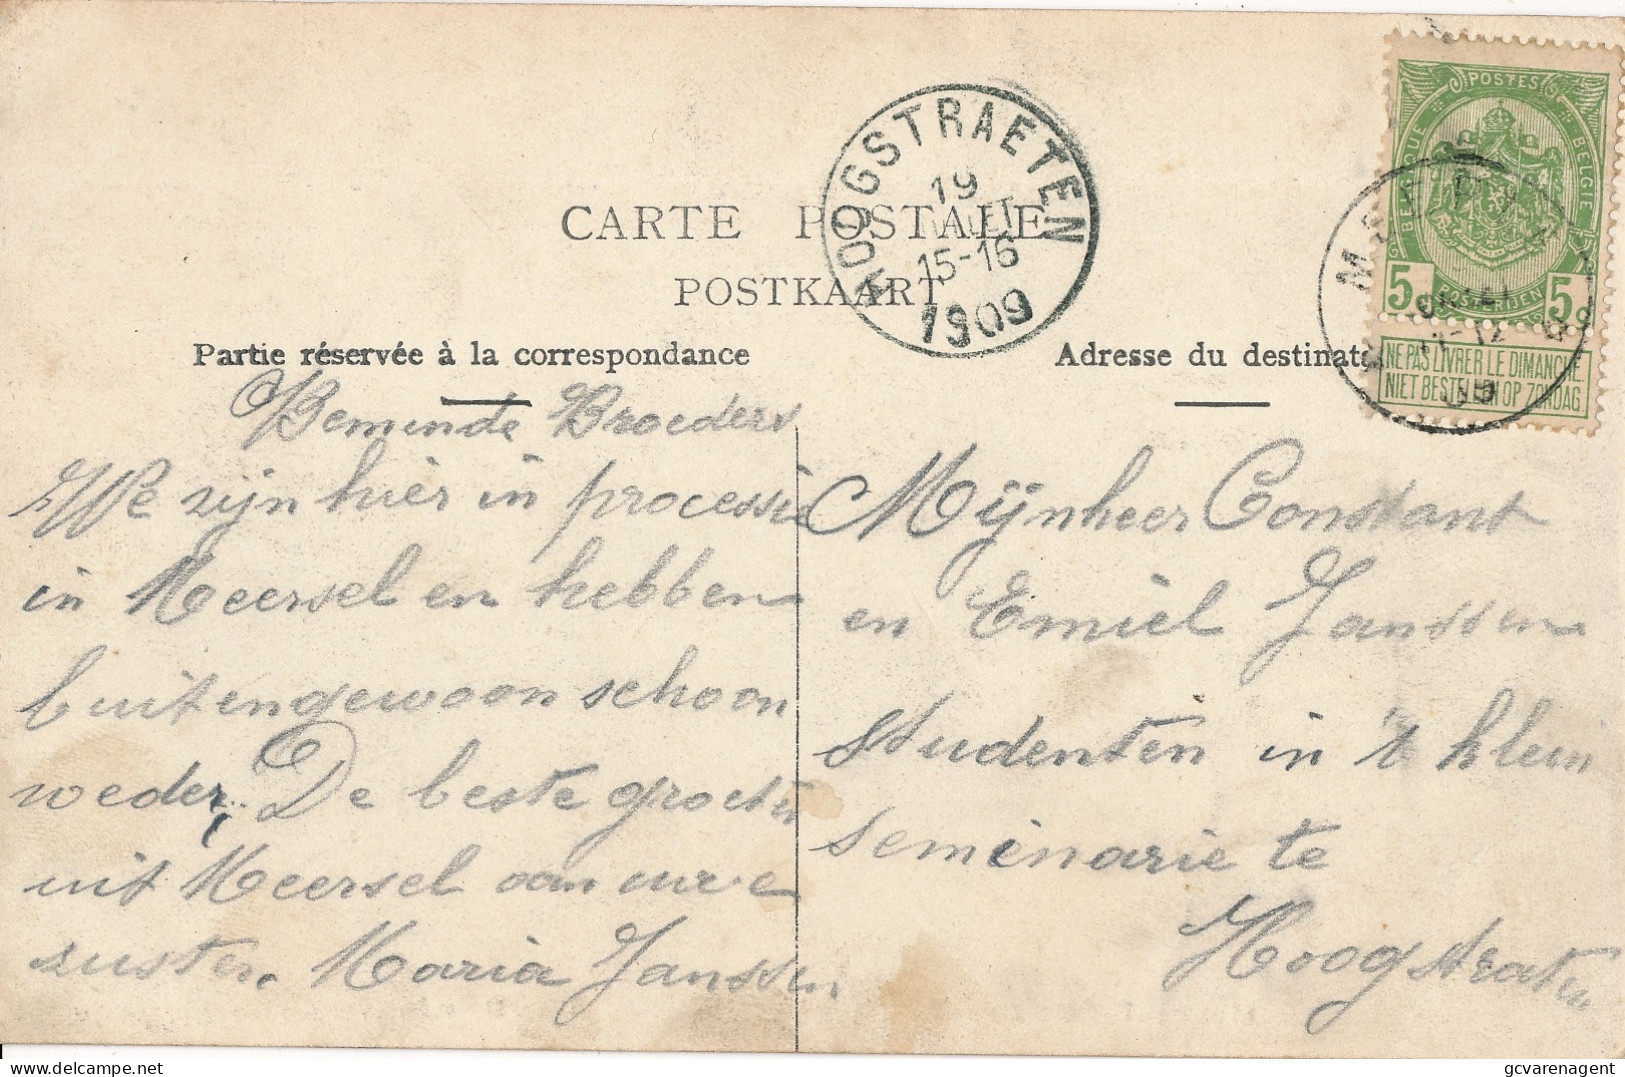 CARTE POSTALE
POSTKAART
HOOGSTRAETEN
19
15-16
1909
POSTES
BELGIQUE
BELGIE
POSTERIJEN
5 5
NE PAS LIVRER LE DIMANCHE
NIET BESTELLEN OP ZONDAG
Partie réservée à la correspondance
Beminde Broeders
We zijn hier in processie
in Meersel en hebben
buitengewoon schoon
weder, De beste groeten
uit Meersel aan uwe
zuster. Maria Janssen
Adresse du destinat
Mijnheer Constant
en Emiel Janssen
studenten in 't klein
seminarie te
Hoogstraten
delcampe.net
gcvarenagent